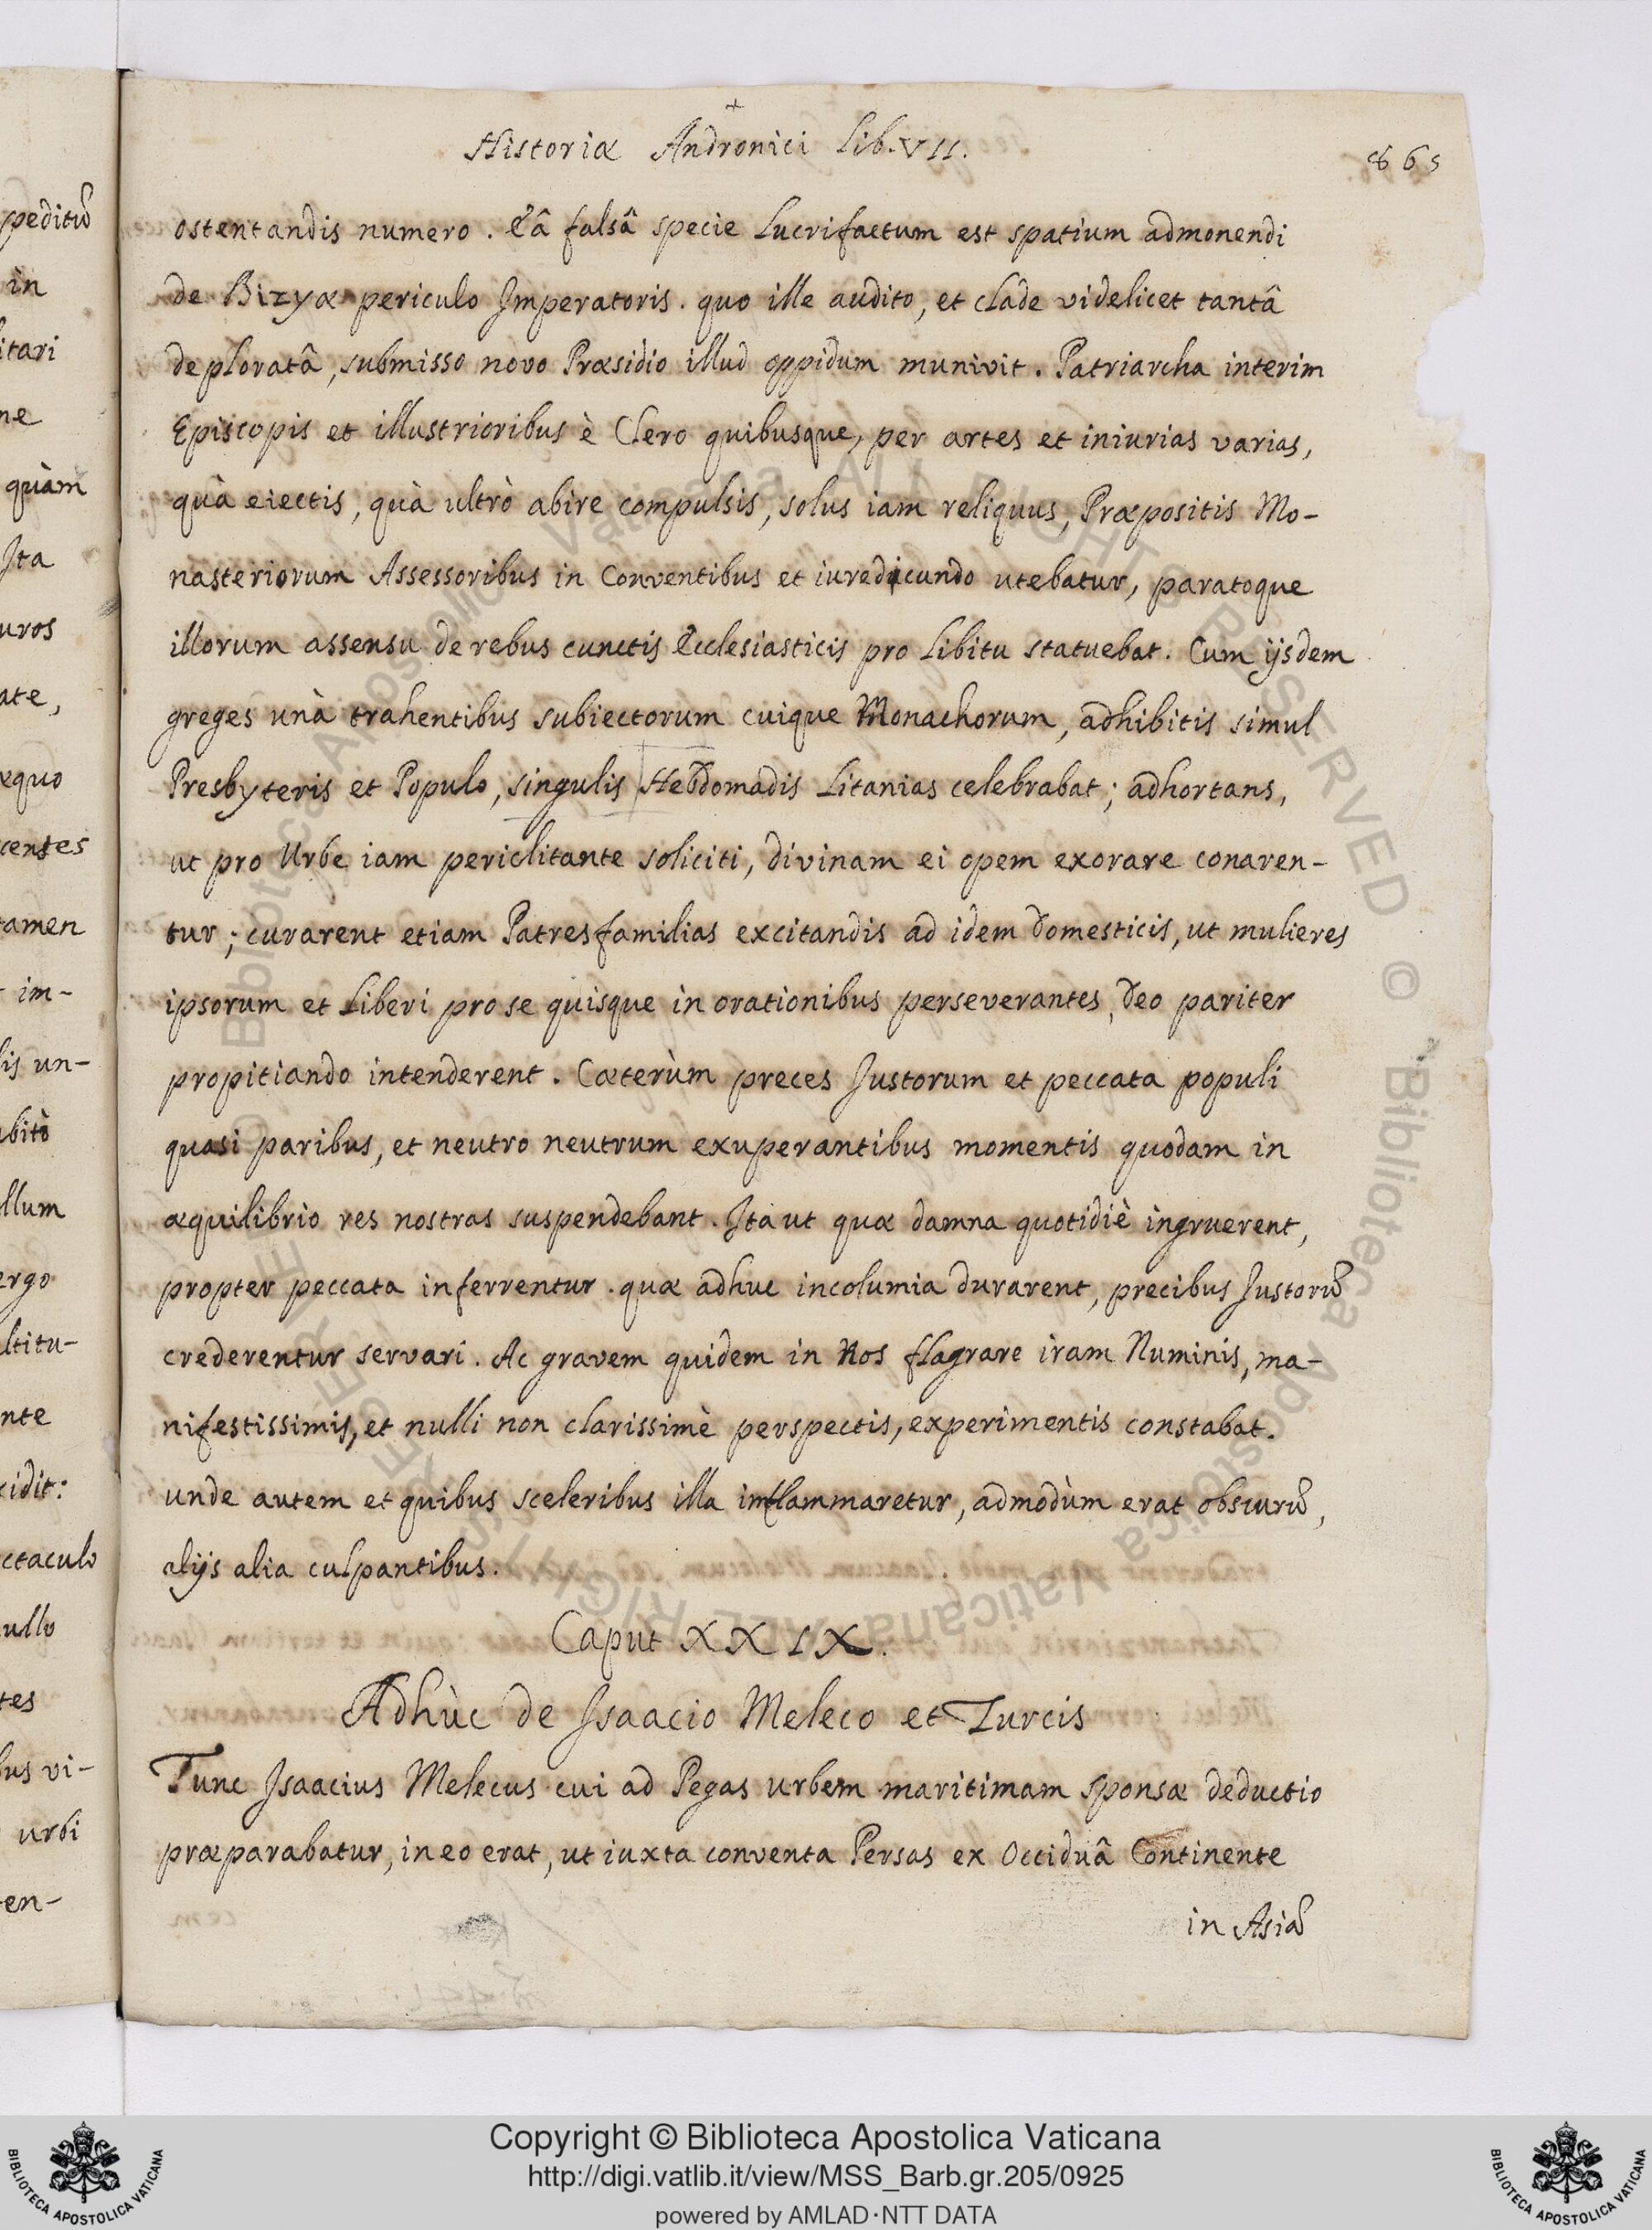 Historiæ Andronici Lib. VII.
865
ostentandis numero. Eâ falsâ specie Lucrifactum est spatium admonendi
de Bizyæ periculo Imperatoris. quo ille audito, et clade videlicet tantâ
deploratâ, submisso novo Præsidio illud oppidum munivit. Patriarcha interim
Episcopis et illustrioribus è Clero quibusque, per artes et iniurias varias,
quà eiectis, quà ultrò abire compulsis, solus iam reliquus, Præpositis Mo-
nasteriorum Assessoribus in Conventibus et iuredicundo utebatur, paratoque
illorum assensu de rebus cunctis Ecclesiasticis pro Libitu statuebat. Cum ijsdem
greges unà trahentibus subiectorum cuique Monachorum, adhibitis simul
Presbyteris et Populo, singulis Hebdomadis Litanias celebrabat; adhortans,
ut pro Urbe iam periclitante soliciti, divinam ei opem exorare conaren-
tur; curarent etiam Patresfamilias excitandis ad idem Domesticis, ut mulieres
ipsorum et Liberi pro se quisque in orationibus perseverantes, Deo pariter
propitiando intenderent. Cæterùm preces Justorum et peccata populi
quasi paribus, et neutro neutrum exuperantibus momentis quodam in
æquilibrio res nostras suspendebant. Ita ut quæ damna quotidiè ingruerent,
propter peccata inferrentur. quæ adhuc incolumia durarent, precibus Justorũ
crederentur servari. Ac gravem quidem in Nos flagrare iram Numinis, ma-
nifestissimis, et nulli non clarissimè perspectis, experimentis constabat.
unde autem et quibus sceleribus illa inflammaretur, admodùm erat obscurũ,
alijs alia culpantibus.
Caput XXIX.
Adhùc de Isaacio Meleco et Turcis
Tunc Isaacius Melecus cui ad Pegas urbem maritimam sponsæ deductio
præparabatur, in eo erat, ut iuxta conventa Persas ex Occiduâ Continente
in Asiã
peditũ
in
itari
ne
quàm
Ita
uros
ate,
æquo
centes
tamen
im-
lis un-
bitò
llum
ergo
ltitu-
nte
cidit:
ctaculo
ullo
tes
bus vi-
urbi
en-
© Biblioteca Apostolica Vaticana ALL RIGHTS RESERVED
Copyright © Biblioteca Apostolica Vaticana
http://digi.vatlib.it/view/MSS_Barb.gr.205/0925
powered by AMLAD·NTT DATA
BIBLIOTECA APOSTOLICA VATICANA
BIBLIOTECA APOSTOLICA VATICANA